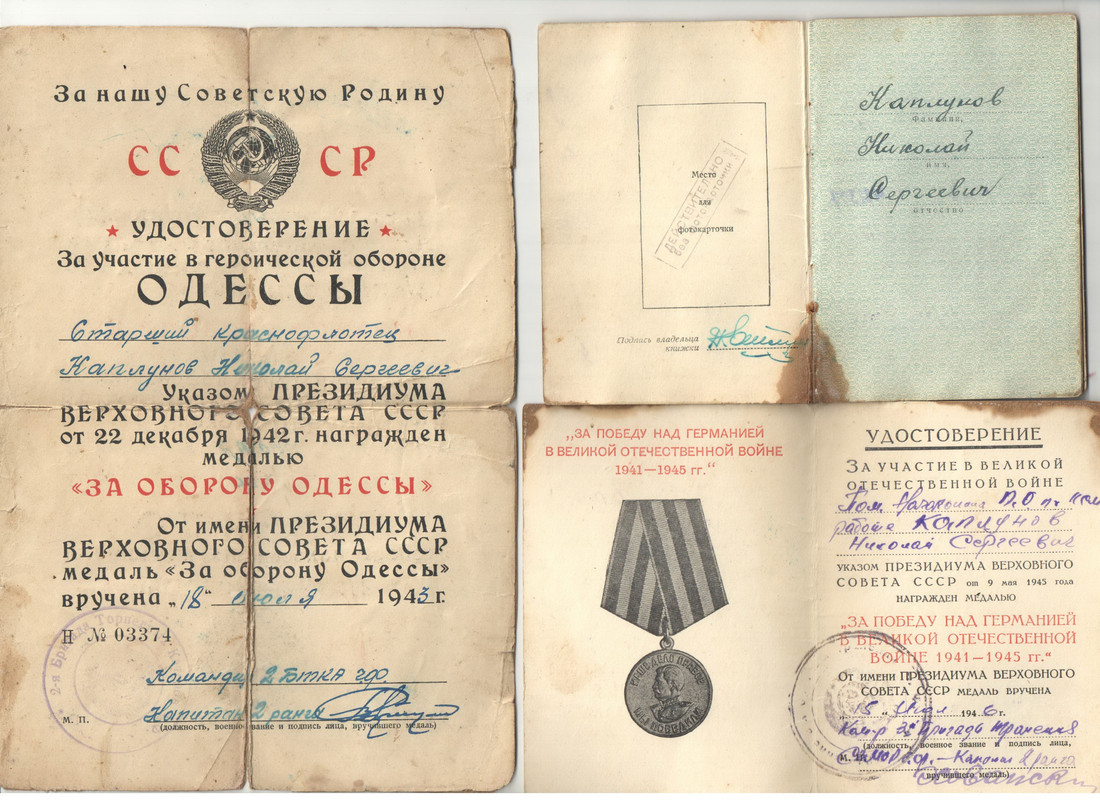 За нашу Советскую Родину
СССР
УДОСТОВЕРЕНИЕ
За участие в героической обороне
ОДЕССЫ
Старший краснофлотец
Каплунов Николай Сергеевич
Указом ПРЕЗИДИУМА
ВЕРХОВНОГО СОВЕТА СССР
от 22 декабря 1942 г. награжден
медалью
«ЗА ОБОРОНУ ОДЕССЫ»
От имени ПРЕЗИДИУМА
ВЕРХОВНОГО СОВЕТА СССР
медаль «За оборону Одессы»
вручена „18" июля 1943 г.
Н № 03374
2-я Бригада Торп
Командир 2 БТКА ЧФ
Капитан 2 ранга
М. П.
(должность, военное звание и подпись лица, вручившего медаль)
Место
для
фотокарточки
ДЕЙСТВИТЕЛЬНО
без фотокарточки
Подпись владельца
книжки
Каплунов
Фамилия,
Николай
имя,
Сергеевич
отчество
„ЗА ПОБЕДУ НАД ГЕРМАНИЕЙ
В ВЕЛИКОЙ ОТЕЧЕСТВЕННОЙ ВОЙНЕ
1941—1945 гг."
НАШЕ ДЕЛО ПРАВОЕ
МЫ ПОБЕДИЛИ
УДОСТОВЕРЕНИЕ
ЗА УЧАСТИЕ В ВЕЛИКОЙ
ОТЕЧЕСТВЕННОЙ ВОЙНЕ
Пом.
района Каплунов
Николай Сергеевич
УКАЗОМ ПРЕЗИДИУМА ВЕРХОВНОГО
СОВЕТА СССР от 9 мая 1945 года
НАГРАЖДЕН МЕДАЛЬЮ
„ЗА ПОБЕДУ НАД ГЕРМАНИЕЙ
В ВЕЛИКОЙ ОТЕЧЕСТВЕННОЙ
ВОЙНЕ 1941—1945 гг."
ОТ ИМЕНИ ПРЕЗИДИУМА ВЕРХОВНОГО
СОВЕТА СССР МЕДАЛЬ ВРУЧЕНА
1946 г.
Ком-р бригады траления
(должность, военное звание и подпись лица,
М. П.
Капитан 2 ранга
вручившего медаль)